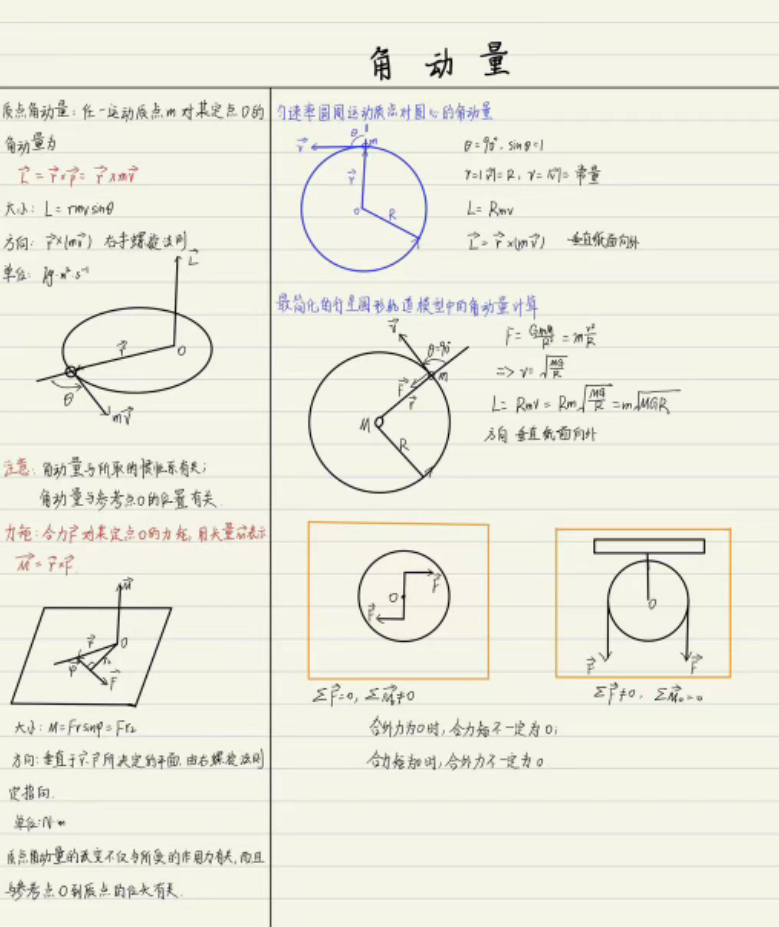 角动量
质点角动量：任一运动质点m对某定点O的
角动量为
L⃗ = r⃗×p⃗ = r⃗×mv⃗
大小：L = rmvsinθ
方向：r⃗×(mv⃗) 右手螺旋法则
单位：kg·m²·s⁻¹
L⃗
r⃗
O
θ
mv⃗
注意：角动量与所取的惯性系有关；
角动量与参考点O的位置有关
力矩：合力F⃗对某定点O的力矩，用矢量m⃗表示
M⃗ = r⃗×F⃗
M⃗
r⃗
O
φ
F⃗
大小：M=Frsinφ=Fr₂
方向：垂直于r⃗、F⃗所决定的平面，由右螺旋法则
定指向.
单位：N·m
质点角动量的改变不仅与所受的作用力有关，而且
与参考点O到质点的位矢有关.
匀速率圆周运动质点对圆心的角动量
θ
m
v⃗
r⃗
O
R
θ=90°, sinθ=1
r=|r⃗|=R, v=|v⃗|=常量
L=Rmv
L⃗ = r⃗×(mv⃗) 垂直纸面向外
最简化的行星圆形轨道模型中的角动量计算
v⃗
θ=90°
m
F⃗
r⃗
M
R
F = GmM/R² = m v²/R
=> v = √(MG/R)
L = Rmv = Rm√(MG/R) = m√(MGR)
方向 垂直纸面向外
O
F⃗
F⃗
ΣF⃗=0, ΣM⃗₀≠0
O
F⃗
F⃗
ΣF⃗≠0, ΣM⃗₀=0
合外力为0时，合力矩不一定为0；
合力矩为0时，合外力不一定为0